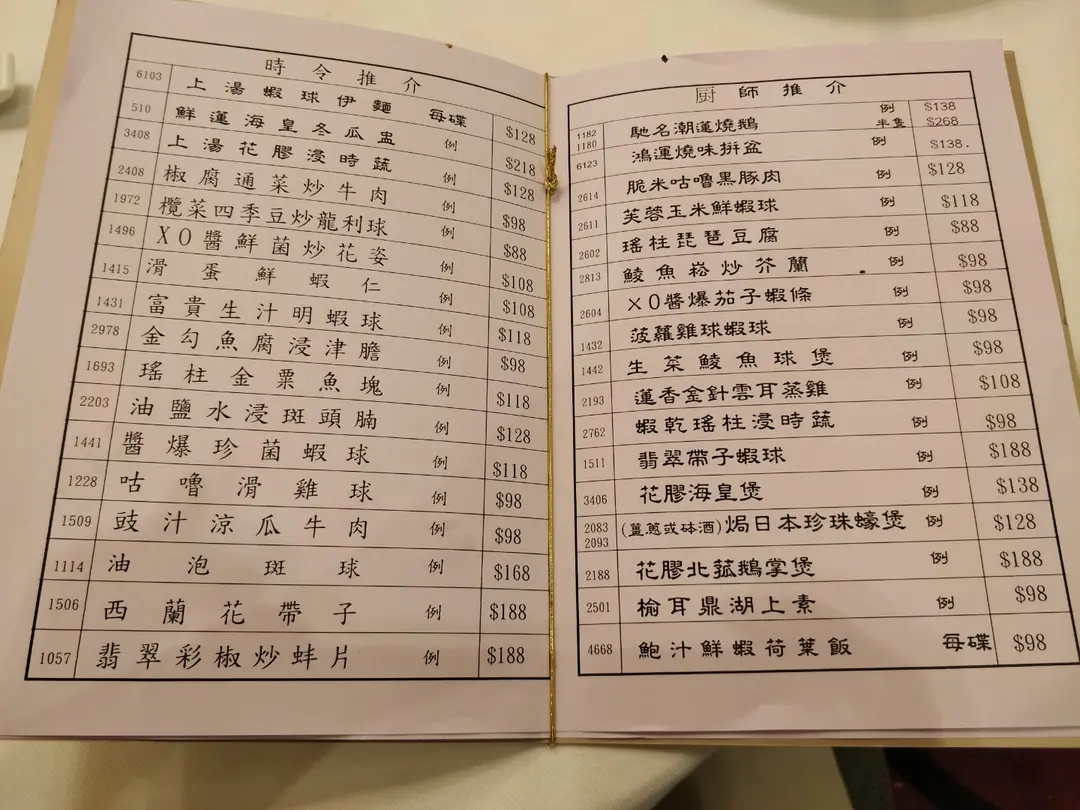 時令推介
6103 上湯蝦球伊麵 每碟 $128
510 鮮蓮海皇冬瓜盅 例 $218
3408 上湯花膠浸時蔬 例 $128
2408 椒腐通菜炒牛肉 例 $98
1972 欖菜四季豆炒龍利球 例 $88
1496 XO醬鮮菌炒花姿 例 $108
1415 滑蛋鮮蝦仁 例 $108
1431 富貴生汁明蝦球 例 $118
2978 金勾魚腐浸津膽 例 $98
1693 瑤柱金粟魚塊 例 $118
2203 油鹽水浸斑頭腩 例 $128
1441 醬爆珍菌蝦球 例 $118
1228 咕嚕滑雞球 例 $98
1509 豉汁涼瓜牛肉 例 $98
1114 油泡斑球 例 $168
1506 西蘭花帶子 例 $188
1057 翡翠彩椒炒蚌片 例 $188
厨師推介
1182 馳名潮蓮燒鵝 例 $138
1180 半隻 $268
6123 鴻運燒味拼盆 例 $138.
2614 脆米咕嚕黑豚肉 例 $128
2611 芙蓉玉米鮮蝦球 例 $118
2602 瑤柱琵琶豆腐 例 $88
2813 鯪魚崧炒芥蘭 例 $98
2604 XO醬爆茄子蝦條 例 $98
1432 菠蘿雞球蝦球 例 $98
1442 生菜鯪魚球煲 例 $98
2193 蓮香金針雲耳蒸雞 例 $108
2762 蝦乾瑤柱浸時蔬 例 $98
1511 翡翠帶子蝦球 例 $188
3406 花膠海皇煲 例 $138
2083 (薑蔥或砵酒)焗日本珍珠蠔煲 例 $128
2093
2188 花膠北菰鵝掌煲 例 $188
2501 榆耳鼎湖上素 例 $98
4668 鮑汁鮮蝦荷葉飯 每碟 $98